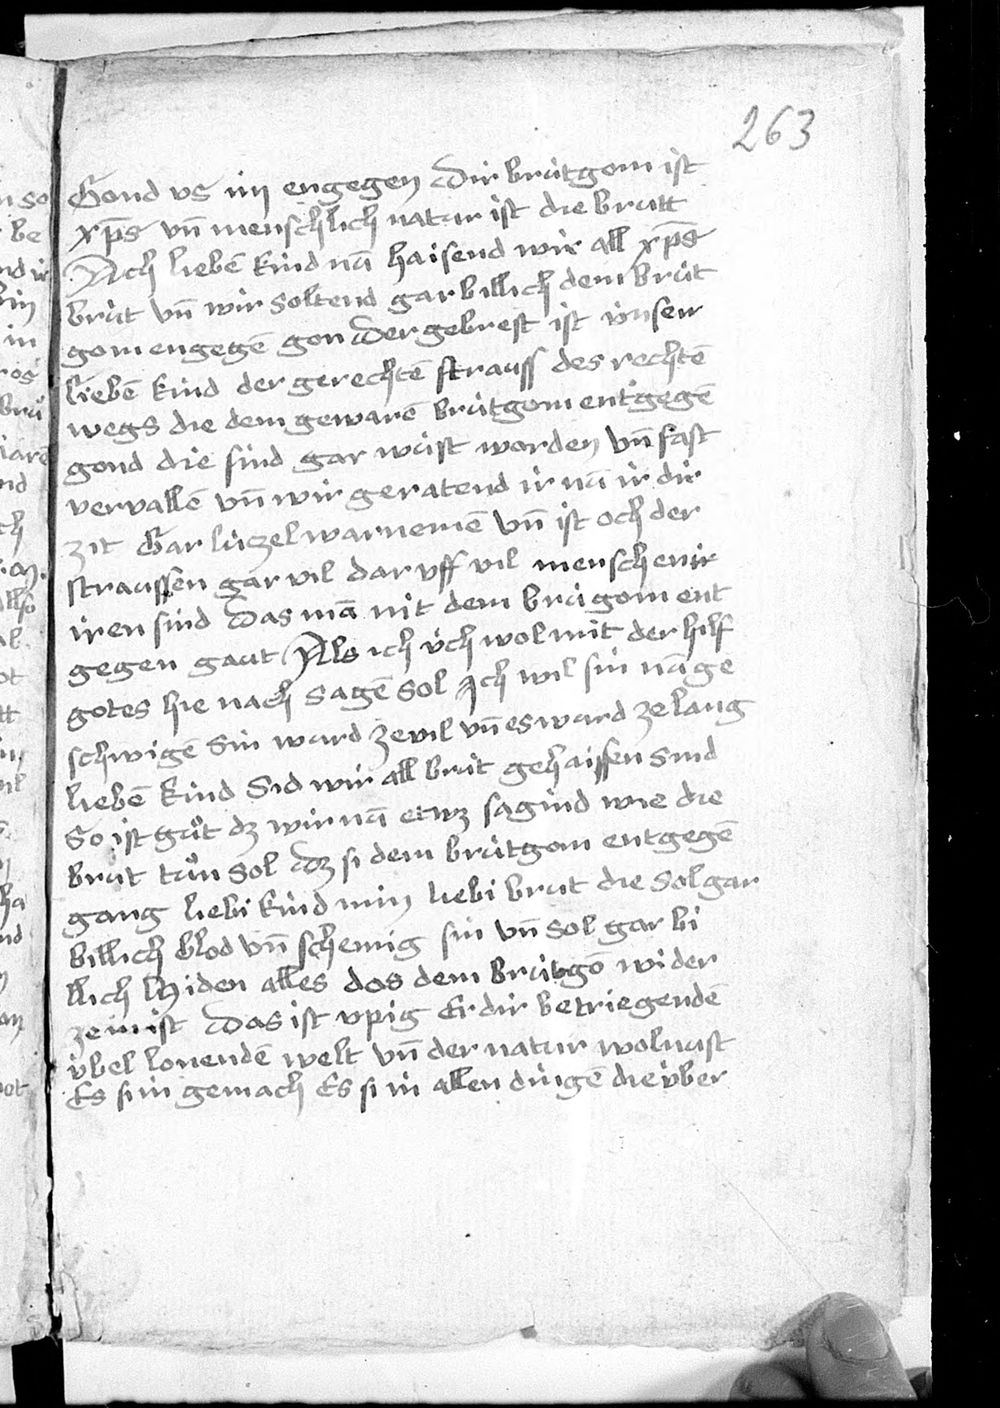 263
Gond vs im engegen Dir brütgom ist
xp̄s vn̄ menschlich natur ist die brutt
Ach liebē kind nu̅ haisend wir all xp̄s
brüt vn̄ wir soltend gar billich dem brüt
gom engegē gon Der gebrest ist vnser
liebē kind der gerechtē strauss des rechtē
wegs die dem gewarē brütgom entgegē
gond die sind gar wüst worden vn̄ fast
vervallē vn̄ wir geratend ir nu̅ ir dir
zit Gar lüzel warnemē vn̄ ist och der
straussen gar vil dar vff vil menschen ir
iren sind Das ma̅ nit dem brügom ent
gegen gaut Als ich üch wol mit der hilf
gotes hie nach sagē sol Ich wil sin nu̅ ge
schwigē Sin ward ze vil vn̄ es ward ze lang
liebē kind Sid wir all brüt gehaissen sind
So ist gůt dz wir nu̅ etwz sagind wie die
brut tůn sol dz si dem brütgom entgegē
gang liebi kind min liebi brut die sol gar
billich blod vn̄ schemig sin vn̄ sol gar bi
llich miden alles dos dem brütgō wider
zemist Das ist vpig Er dir betriegendē
übel lonendē welt vn̄ der natur wolnust
Es si in gemach Es si in allen dingē die über